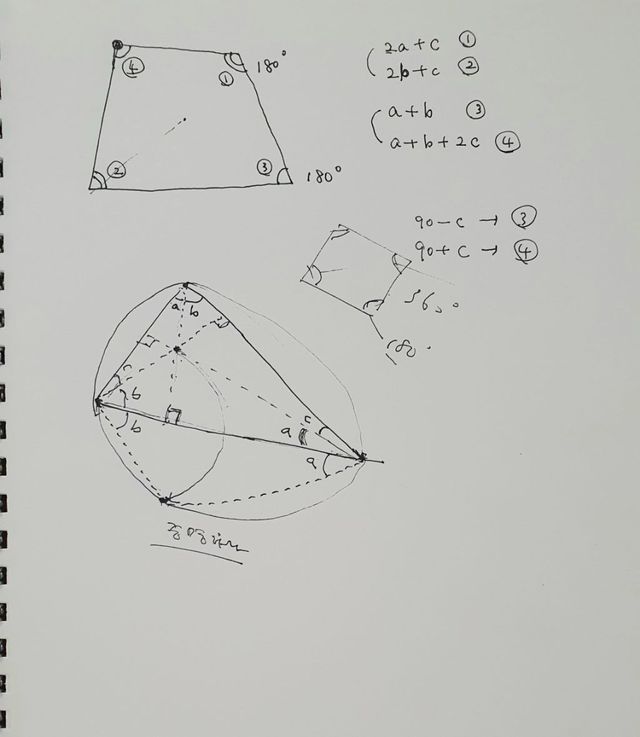 ④ ① 180°
② ③ 180°
2a+c ①
2b+c ②
a+b ③
a+b+2c ④
90-c → ③
90+c → ④
360°
180°
a b
c
b
b
c
a
a